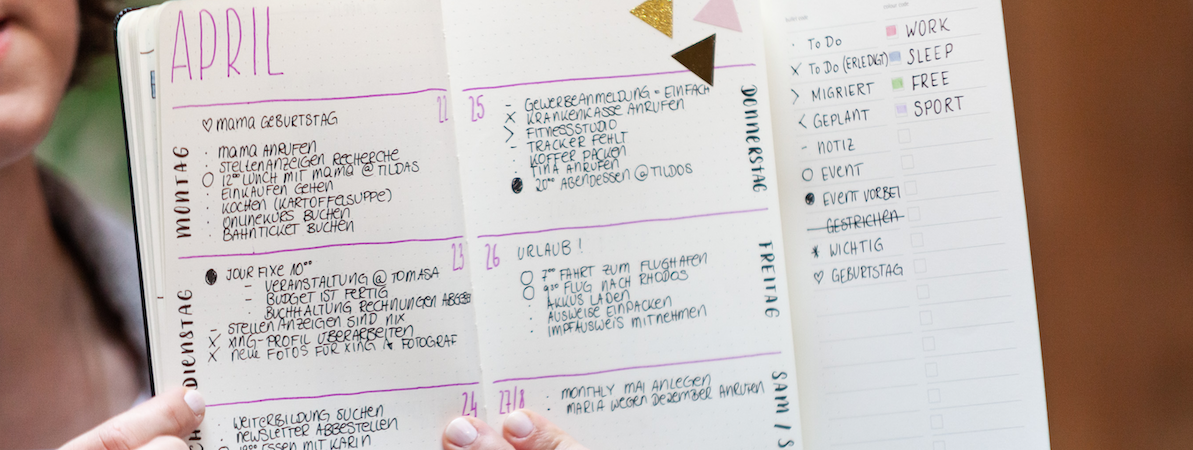 APRIL
MONTAG
22
♡ MAMA GEBURTSTAG
· MAMA ANRUFEN
· STELLENANZEIGEN RECHERCHE
○ 12⁰⁰ LUNCH MIT MAMA @ TILDAS
· EINKAUFEN GEHEN
· KOCHEN (KARTOFFELSUPPE)
· ONLINEKURS BUCHEN
· BAHNTICKET BUCHEN
DIENSTAG
23
● JOUR FIXE 10⁰⁰
– VERANSTALTUNG @ TOMASA
– BUDGET IST FERTIG
– BUCHHALTUNG RECHNUNGEN
– STELLENANZEIGEN SIND NIX
X XING-PROFIL ÜBERARBEITEN
X NEUE FOTOS FÜR XING FOTOGRAF
24
· WEITERBILDUNG SUCHEN
· NEWSLETTER ABBESTELLEN
ESSEN MIT KARIN
25
DONNERSTAG
– GEWERBEANMELDUNG = EINFACH
X KRANKENKASSE ANRUFEN
> FITNESSSTUDIO
– TRACKER FEHLT
· KOFFER PACKEN
· TINA ANRUFEN
● 20⁰⁰ ABENDESSEN @ TILDOS
26
FREITAG
URLAUB!
○ 7⁰⁰ FAHRT ZUM FLUGHAFEN
○ 9²⁰ FLUG NACH RHODOS
· AKKUS LADEN
· AUSWEISE EINPACKEN
· IMPFAUSWEIS MITNEHMEN
27/8
SAM / S
· MONTHLY MAI ANLEGEN
· MARIA WEGEN DEZEMBER ANRUFEN
· TO DO
X TO DO (ERLEDIGT)
> MIGRIERT
< GEPLANT
– NOTIZ
○ EVENT
● EVENT VORBEI
GESTRICHEN
* WICHTIG
♡ GEBURTSTAG
WORK
SLEEP
FREE
SPORT